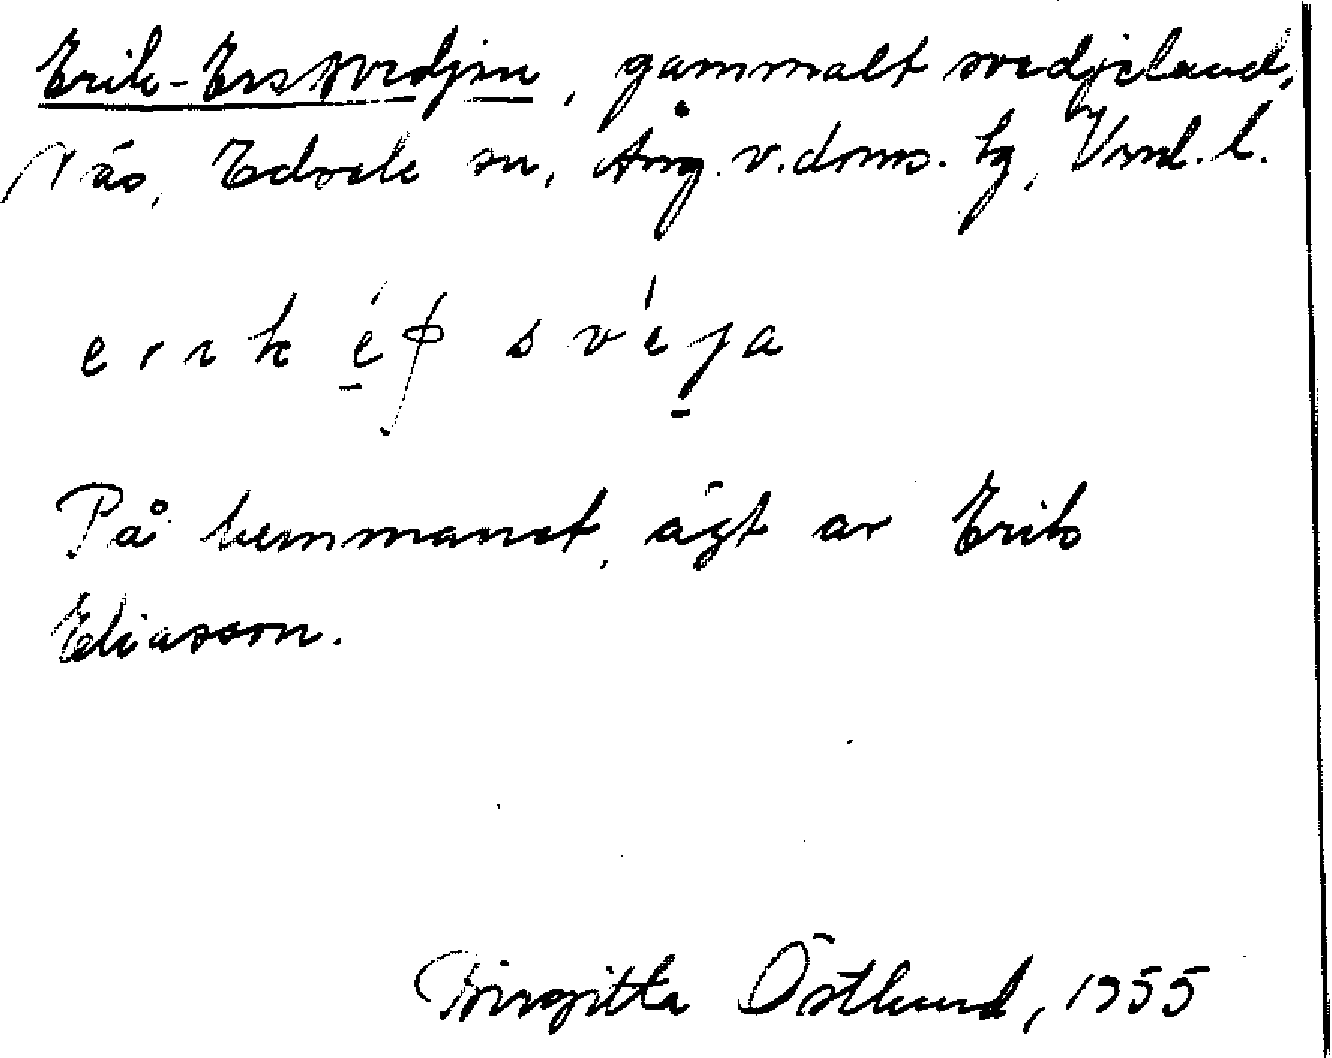 Erik-Erssvedjan, gammalt svedjeland,
Näs, Edsele sn, Ång. v. doms. tg, Vnrl. l.
erik éṣ svéja
På hemmanet, ägt av Erik
Eliasson.
Birgitta Östlund, 1955